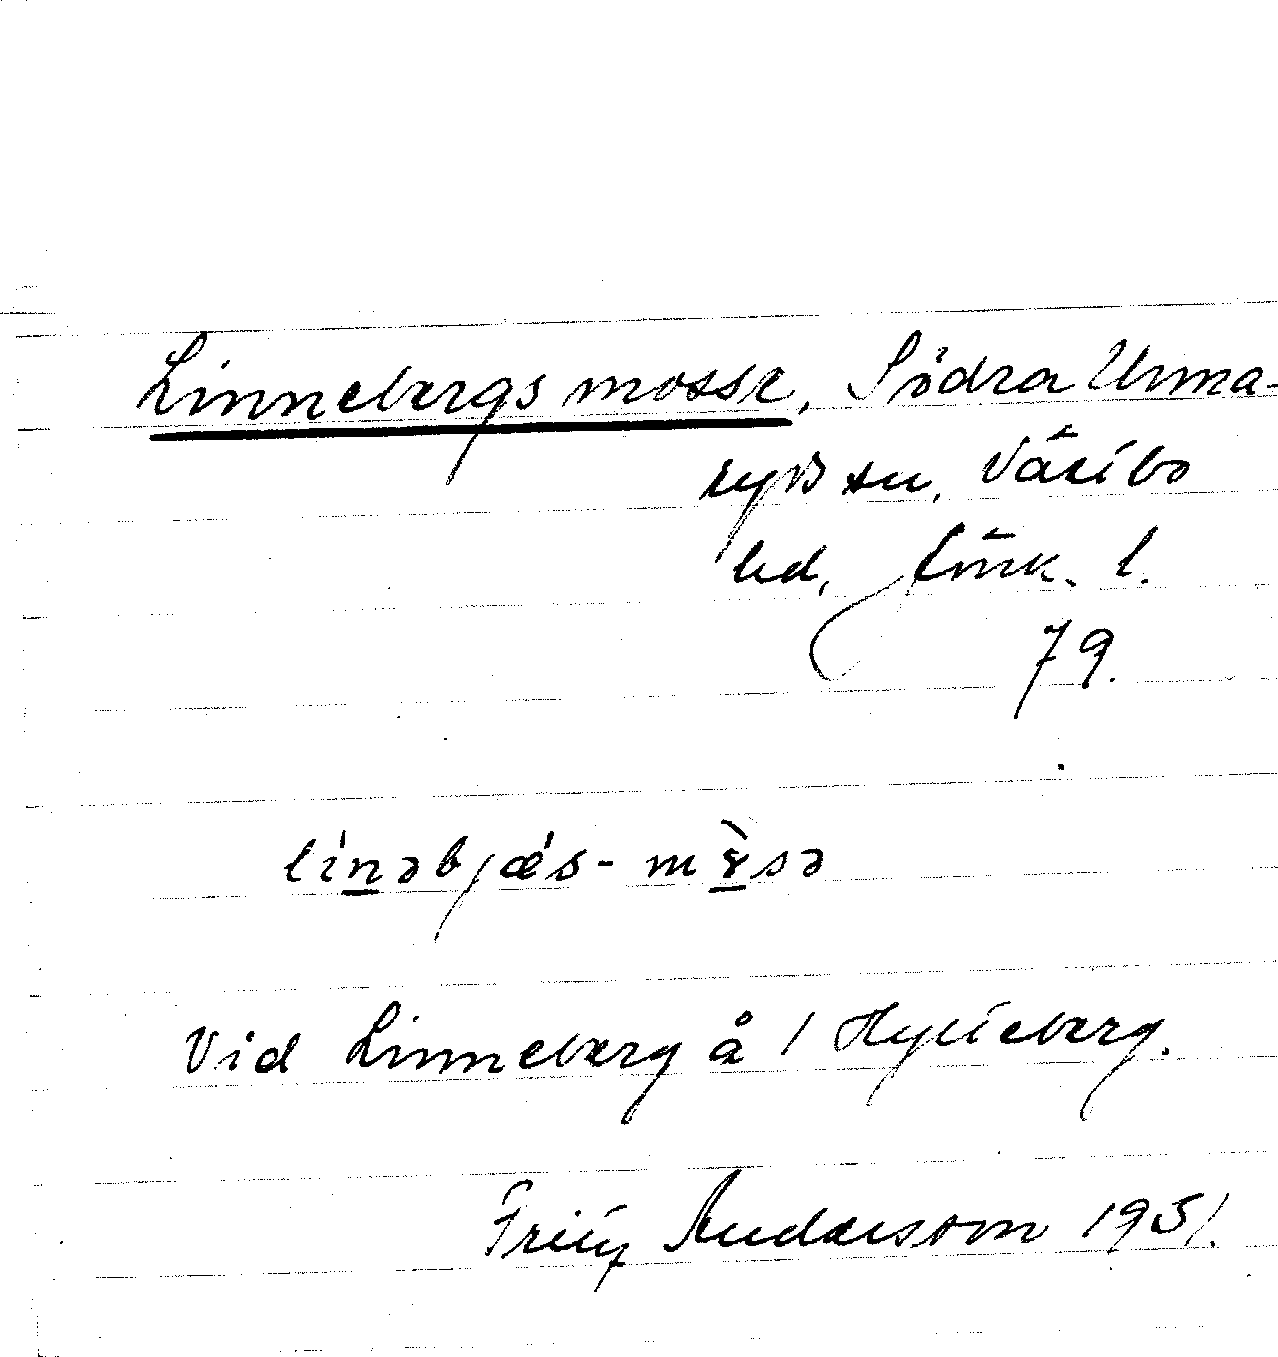 Linnebergs mosse, Södra Unna-
ryds sn, Västbo
hd, Jönk. l.
79.
línəbjǽs-m̀ɤsə
Vid Linneberg å / Hylteberg.
Fritz Andersson 1951.